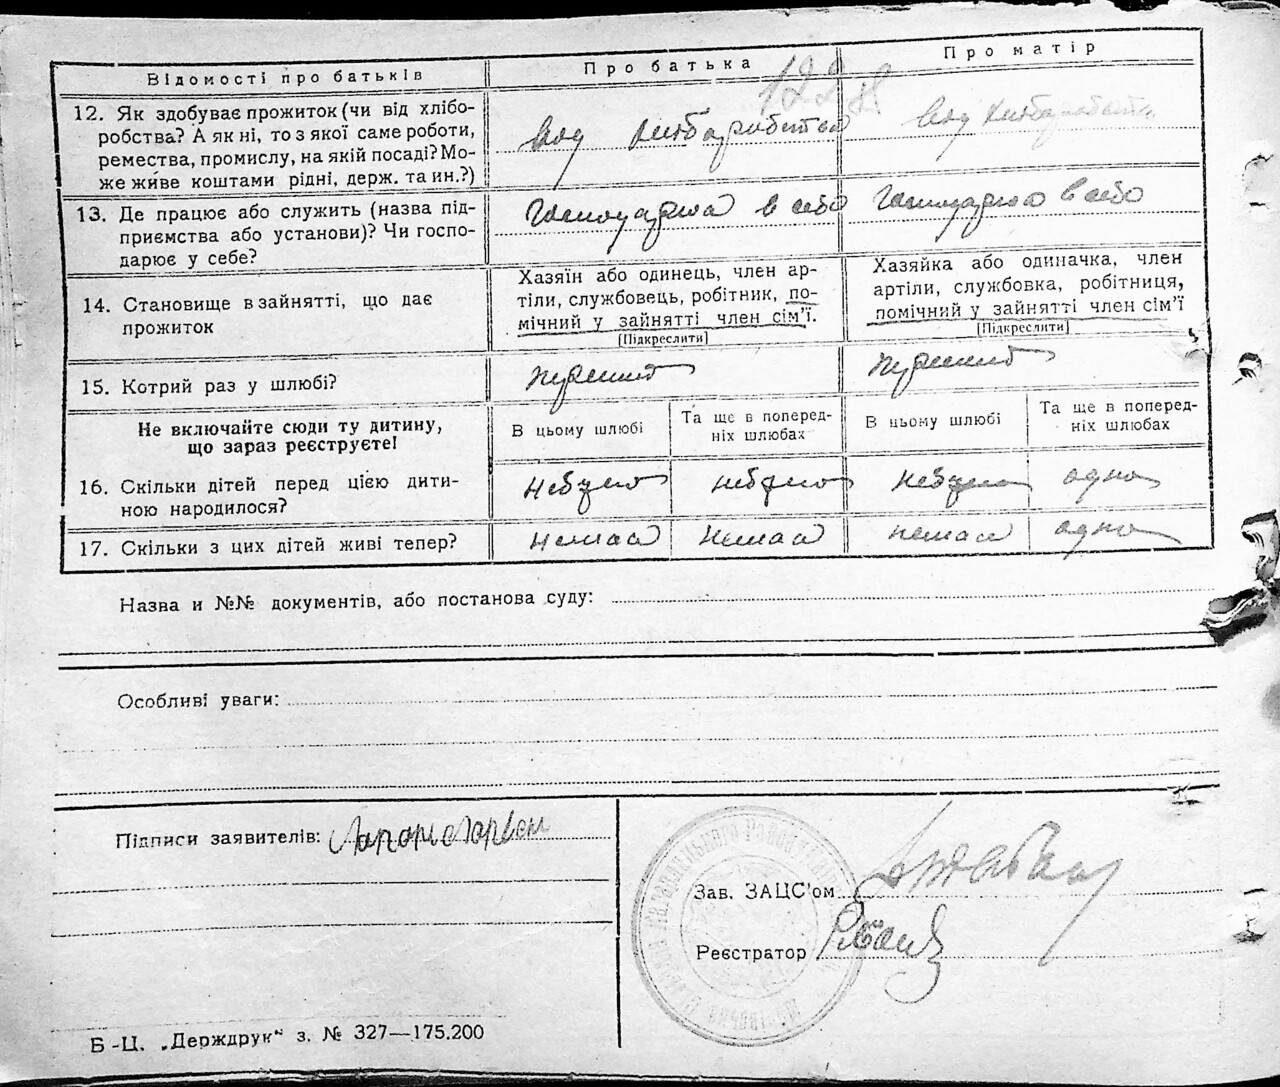 Відомості про батьків
Про батька
Про матір
12. Як здобуває прожиток (чи від хлібо-
робства? А як ні, то з якої саме роботи,
ремества, промислу, на якій посаді? Мо-
же живе коштами рідні, держ. та ин.?)
вод хліборобства
вод хліборобства
13. Де працює або служить (назва під-
приємства або установи)? Чи госпо-
дарює у себе?
в себе
в себе
14. Становище в зайнятті, що дає
прожиток
Хазяїн або одинець, член ар-
тіли, службовець, робітник, по-
мічний у зайнятті член сім'ї.
[Підкреслити]
Хазяйка або одиначка, член
артіли, службовка, робітниця,
помічний у зайнятті член сім'ї
[Підкреслити]
15. Котрий раз у шлюбі?
Не включайте сюди ту дитину,
що зараз реєструєте!
В цьому шлюбі
Та ще в поперед-
ніх шлюбах
В цьому шлюбі
Та ще в поперед-
ніх шлюбах
16. Скільки дітей перед цією дити-
ною народилося?
небуло небуло небуло одна
17. Скільки з цих дітей живі тепер?
немаа немаа немаа одна
Назва и №№ документів, або постанова суду:
Особливі уваги:
Підписи заявителів:
Зав. ЗАЦС'ом
Реєстратор
Б-Ц. „Держдрук“ з. № 327—175.200